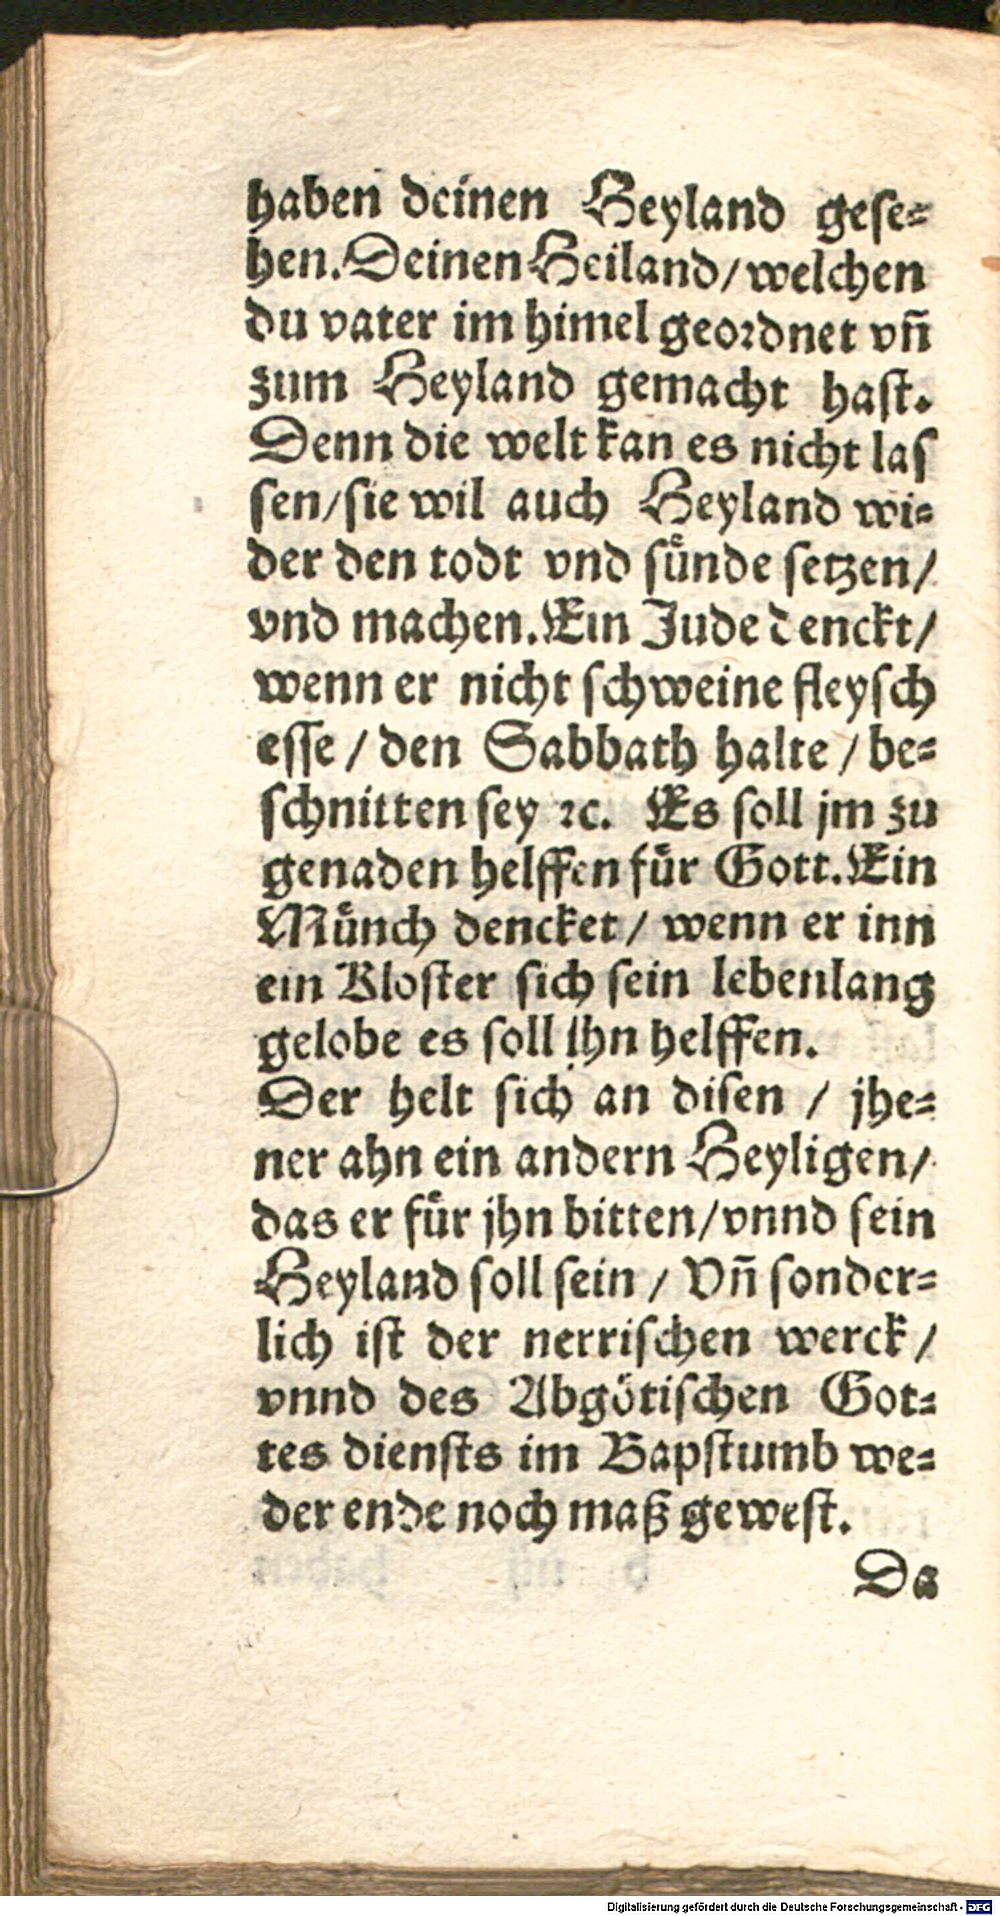 haben deinen Heyland gese⸗
hen. Deinen Heiland/ welchen
du vater im himel geordnet vñ
zum Heyland gemacht hast.
Denn die welt kan es nicht las
sen/ sie wil auch Heyland wi⸗
der den todt vnd sünde setzen/
vnd machen. Ein Jude denckt/
wenn er nicht schweine fleysch
esse / den Sabbath halte / be⸗
schnitten sey ꝛc. Es soll jm zu
genaden helffen für Gott. Ein
Münch dencket / wenn er inn
ein Kloster sich sein lebenlang
gelobe es soll ihn helffen.
Der helt sich an disen / jhe⸗
ner ahn ein andern Heyligen/
das er für jhn bitten/ vnnd sein
Heyland soll sein / Vñ sonder⸗
lich ist der nerrischen werck /
vnnd des Abgötischen Got⸗
tes diensts im Bapstumb we⸗
der ende noch maß gewest.
Da
Digitalisierung gefördert durch die Deutsche Forschungsgemeinschaft - DFG